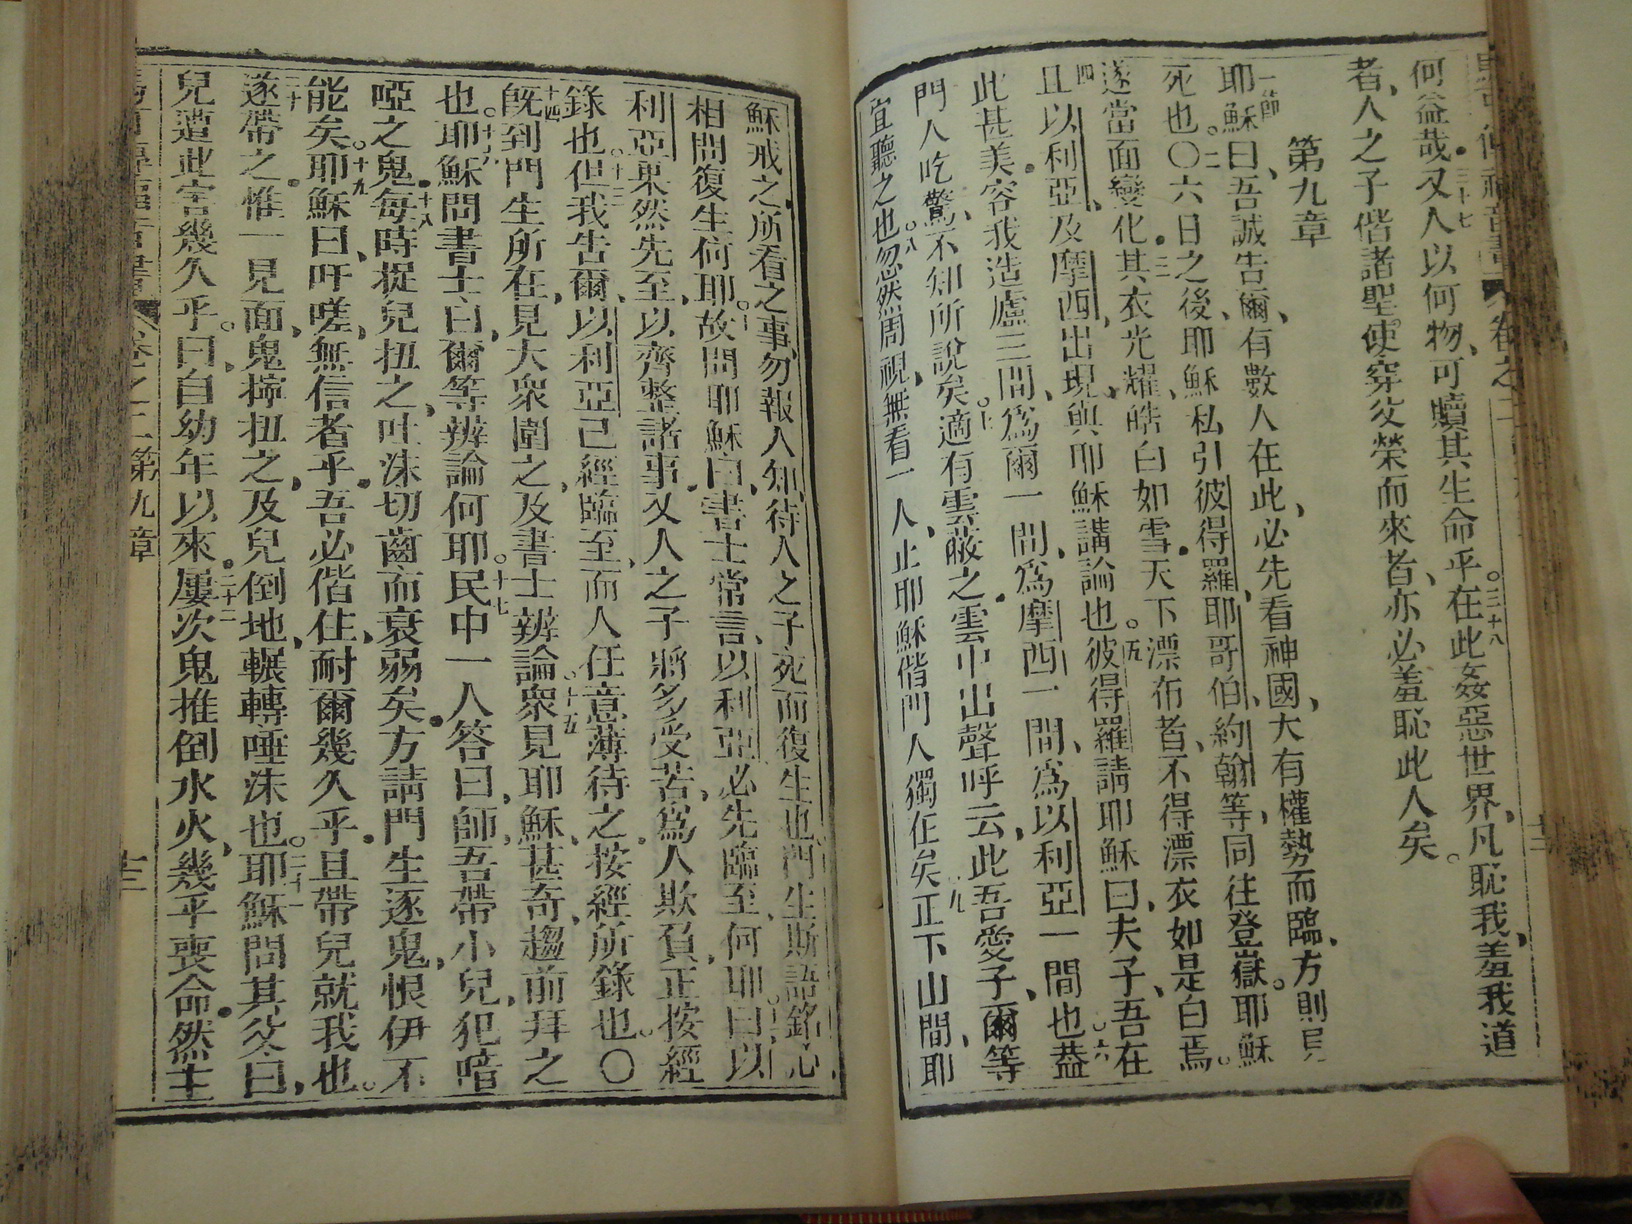 何益哉又人以何物可贖其生命乎在此姦惡世界凡恥我羞我道
三十七
三十八
者人之子偕諸聖使穿父榮而來者亦必羞恥此人矣
第九章
一節
耶穌曰吾誠告爾有數人在此必先看神國大有權勢而臨方則見
死也〇六日之後耶穌私引彼得羅耶哥伯約翰等同往登嶽耶穌
二
遂當面變化其衣光耀皓白如雪天下漂布者不得漂衣如是白焉
三
四
且以利亞及摩西出現與耶穌講論也彼得羅請耶穌曰夫子吾在
五
此甚美容我造廬三間為爾一間為摩西一間為以利亞一間也葢
六
門人吃驚不知所說矣適有雲蔽之雲中出聲呼云此吾愛子爾等
七
宜聽之也忽然周視無看一人止耶穌偕門人獨在矣正下山間耶
八
九
穌戒之所看之事勿報人知待人之子死而復生也門生斯語銘心
相問復生何耶故問耶穌曰書士常言以利亞必先臨至何耶曰以
利亞果然先至以齊整諸事又人之子將多受苦為人欺負正按經
錄也但我告爾以利亞已經臨至而人任意薄待之按經所錄也〇
十三
十四
旣到門生所在見大衆圍之及書士辨論衆見耶穌甚奇趨前拜之
十五
也耶穌問書士曰爾等辨論何耶民中一人答曰師吾帶小兒犯喑
十六
十七
啞之鬼每時捉兒扭之吐沬切齒而衰弱矣方請門生逐鬼恨伊不
十八
能矣耶穌曰吁嗟無信者乎吾必偕住耐爾幾久乎且帶兒就我也
十九
二十
遂帶之惟一見面鬼搦扭之及兒倒地輾轉唾沬也耶穌問其父曰
二十一
兒遭此害幾久乎曰自幼年以來屢次鬼推倒水火幾乎喪命然主
二十二
卷之二第九章
十三